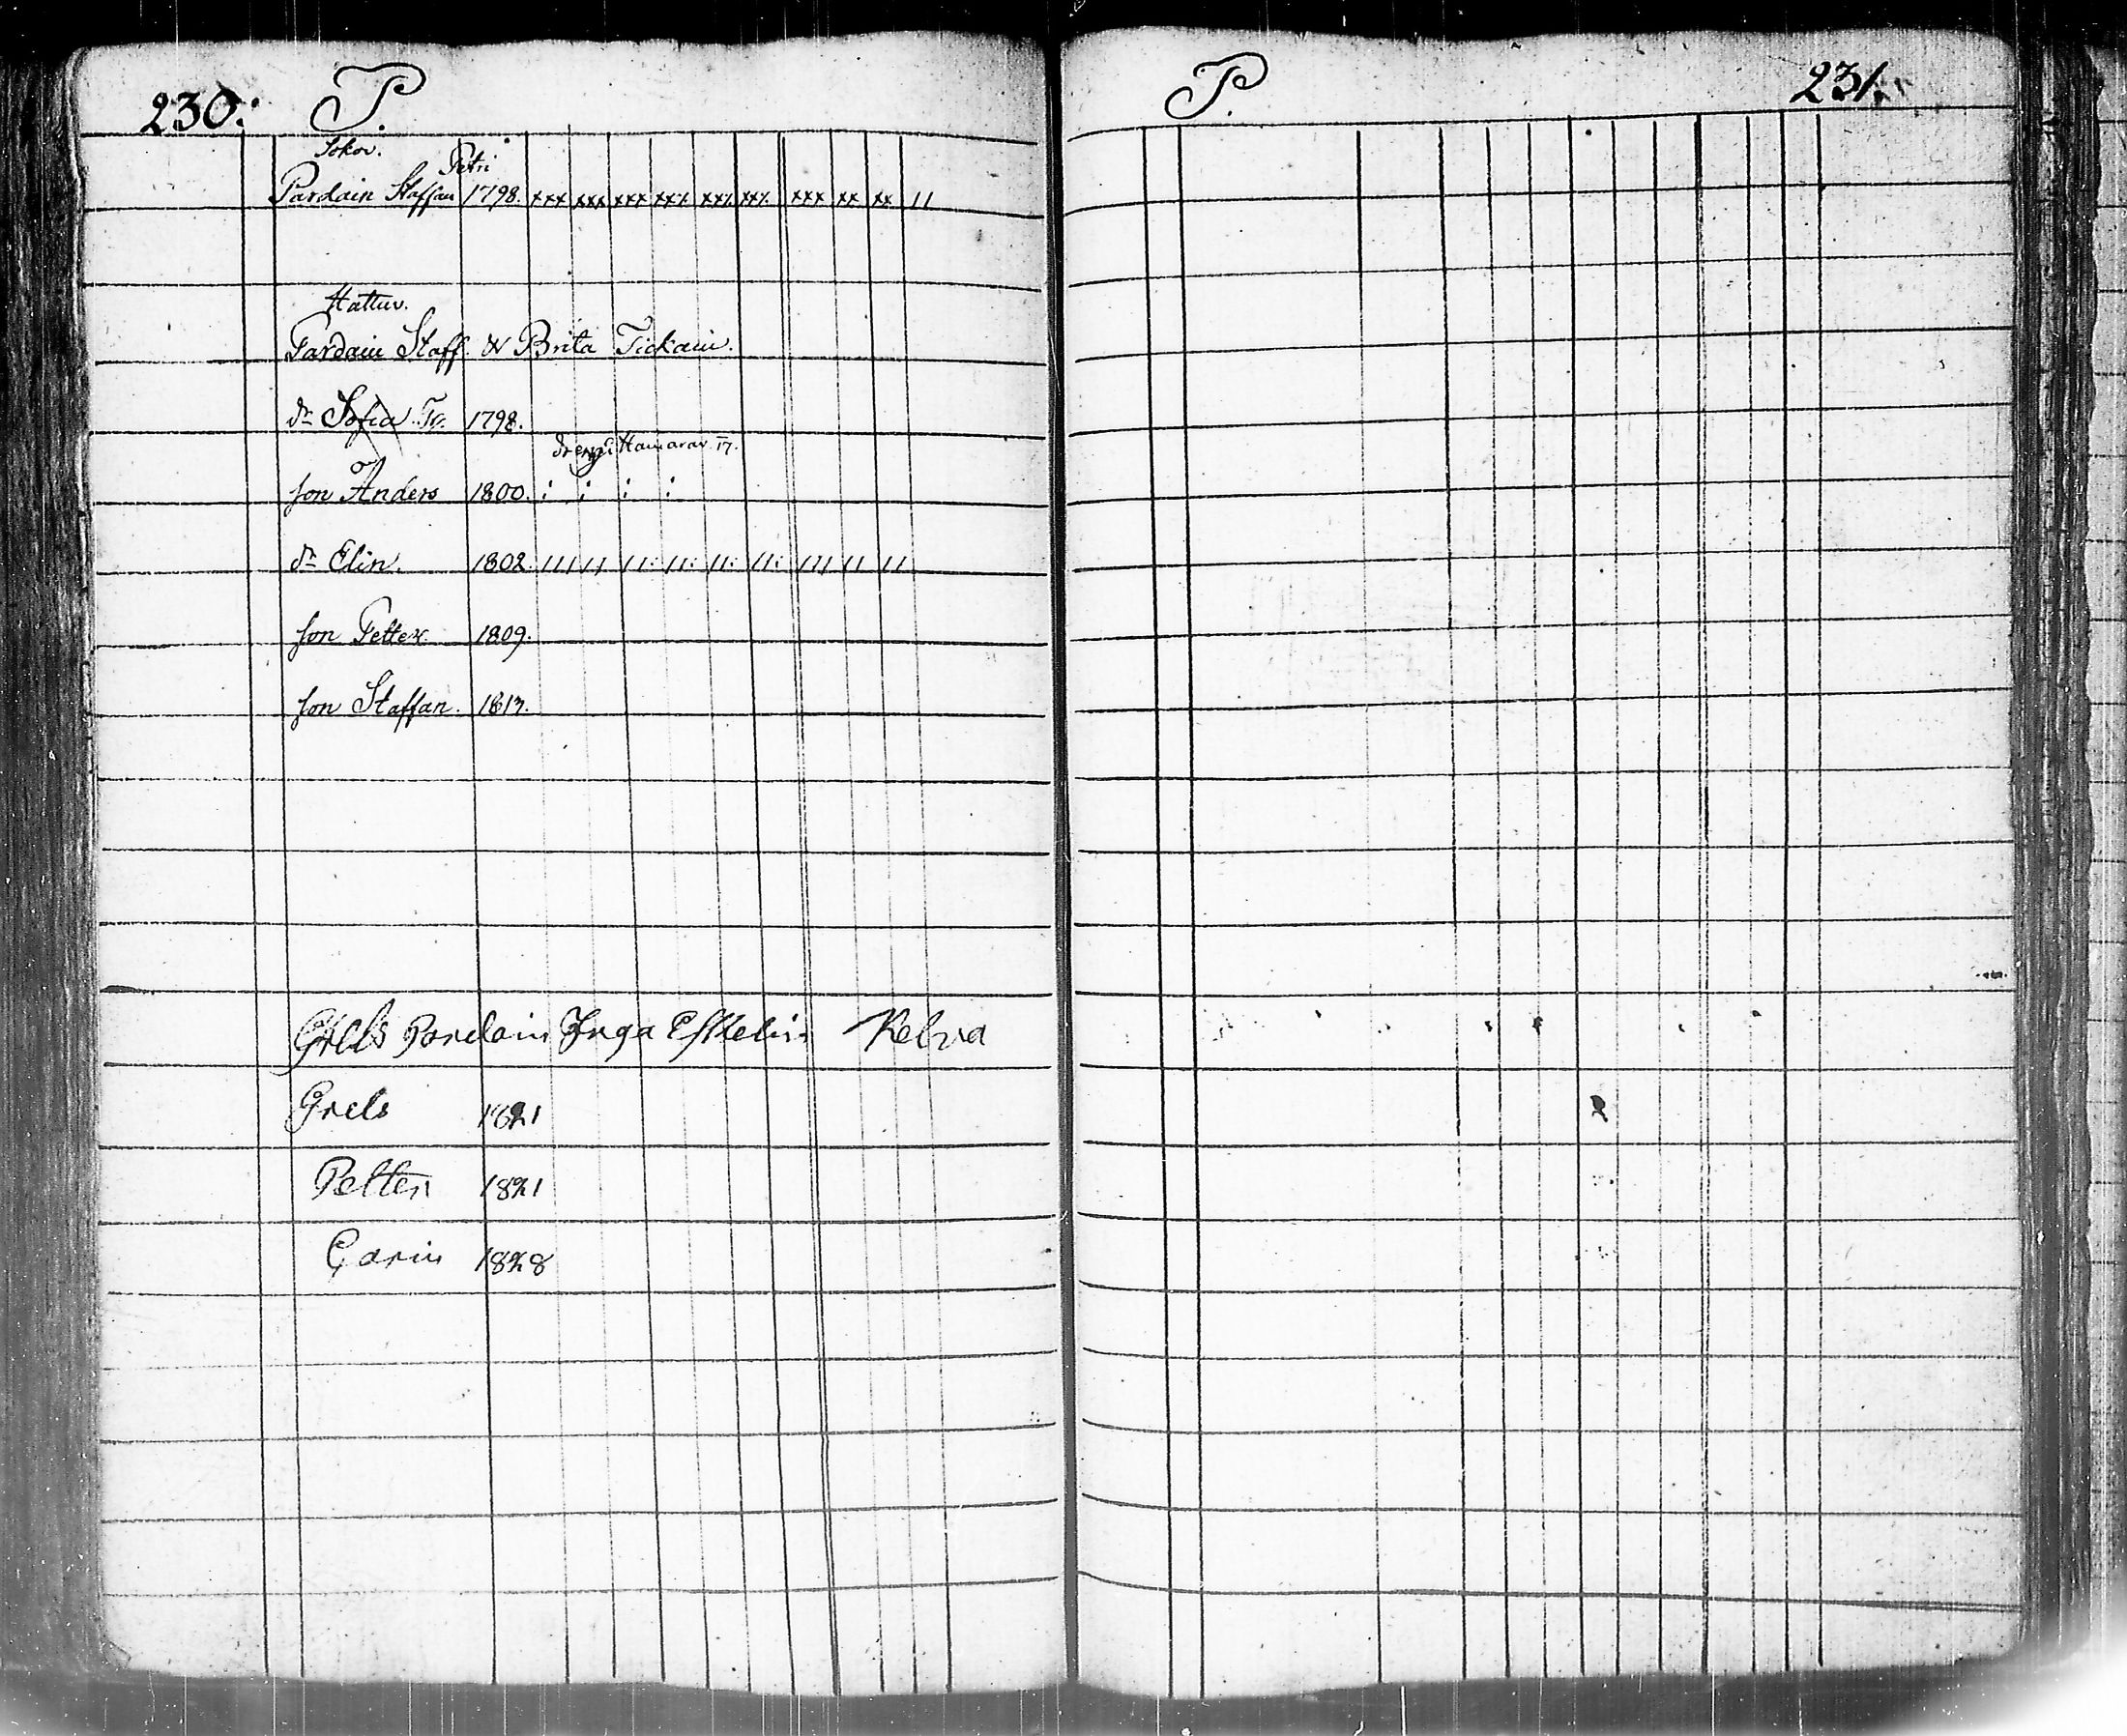 230. P.
Sokov.
Petri
Pardain Staffan 1798. xxx xxx xxx xx% xx% xx% xxx xx xx 11
Hattuv.
Pardain Staff. & Brita Tickain.
dr Sofia Tr. 1798.
son Anders 1800. : : : :
dr Elin. 1802. 111 11 11: 11: 11: 11: 111 11 11
son Petter 1809.
son Staffan. 1813.
Grels Pardain Inga Eskelin Relva
Grels 1821
Petter 1821
Carin 1828
P. 231.